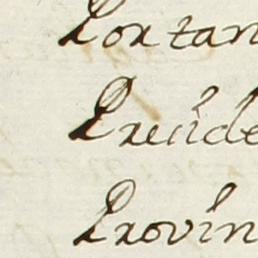 Portan
Preüde
Provin